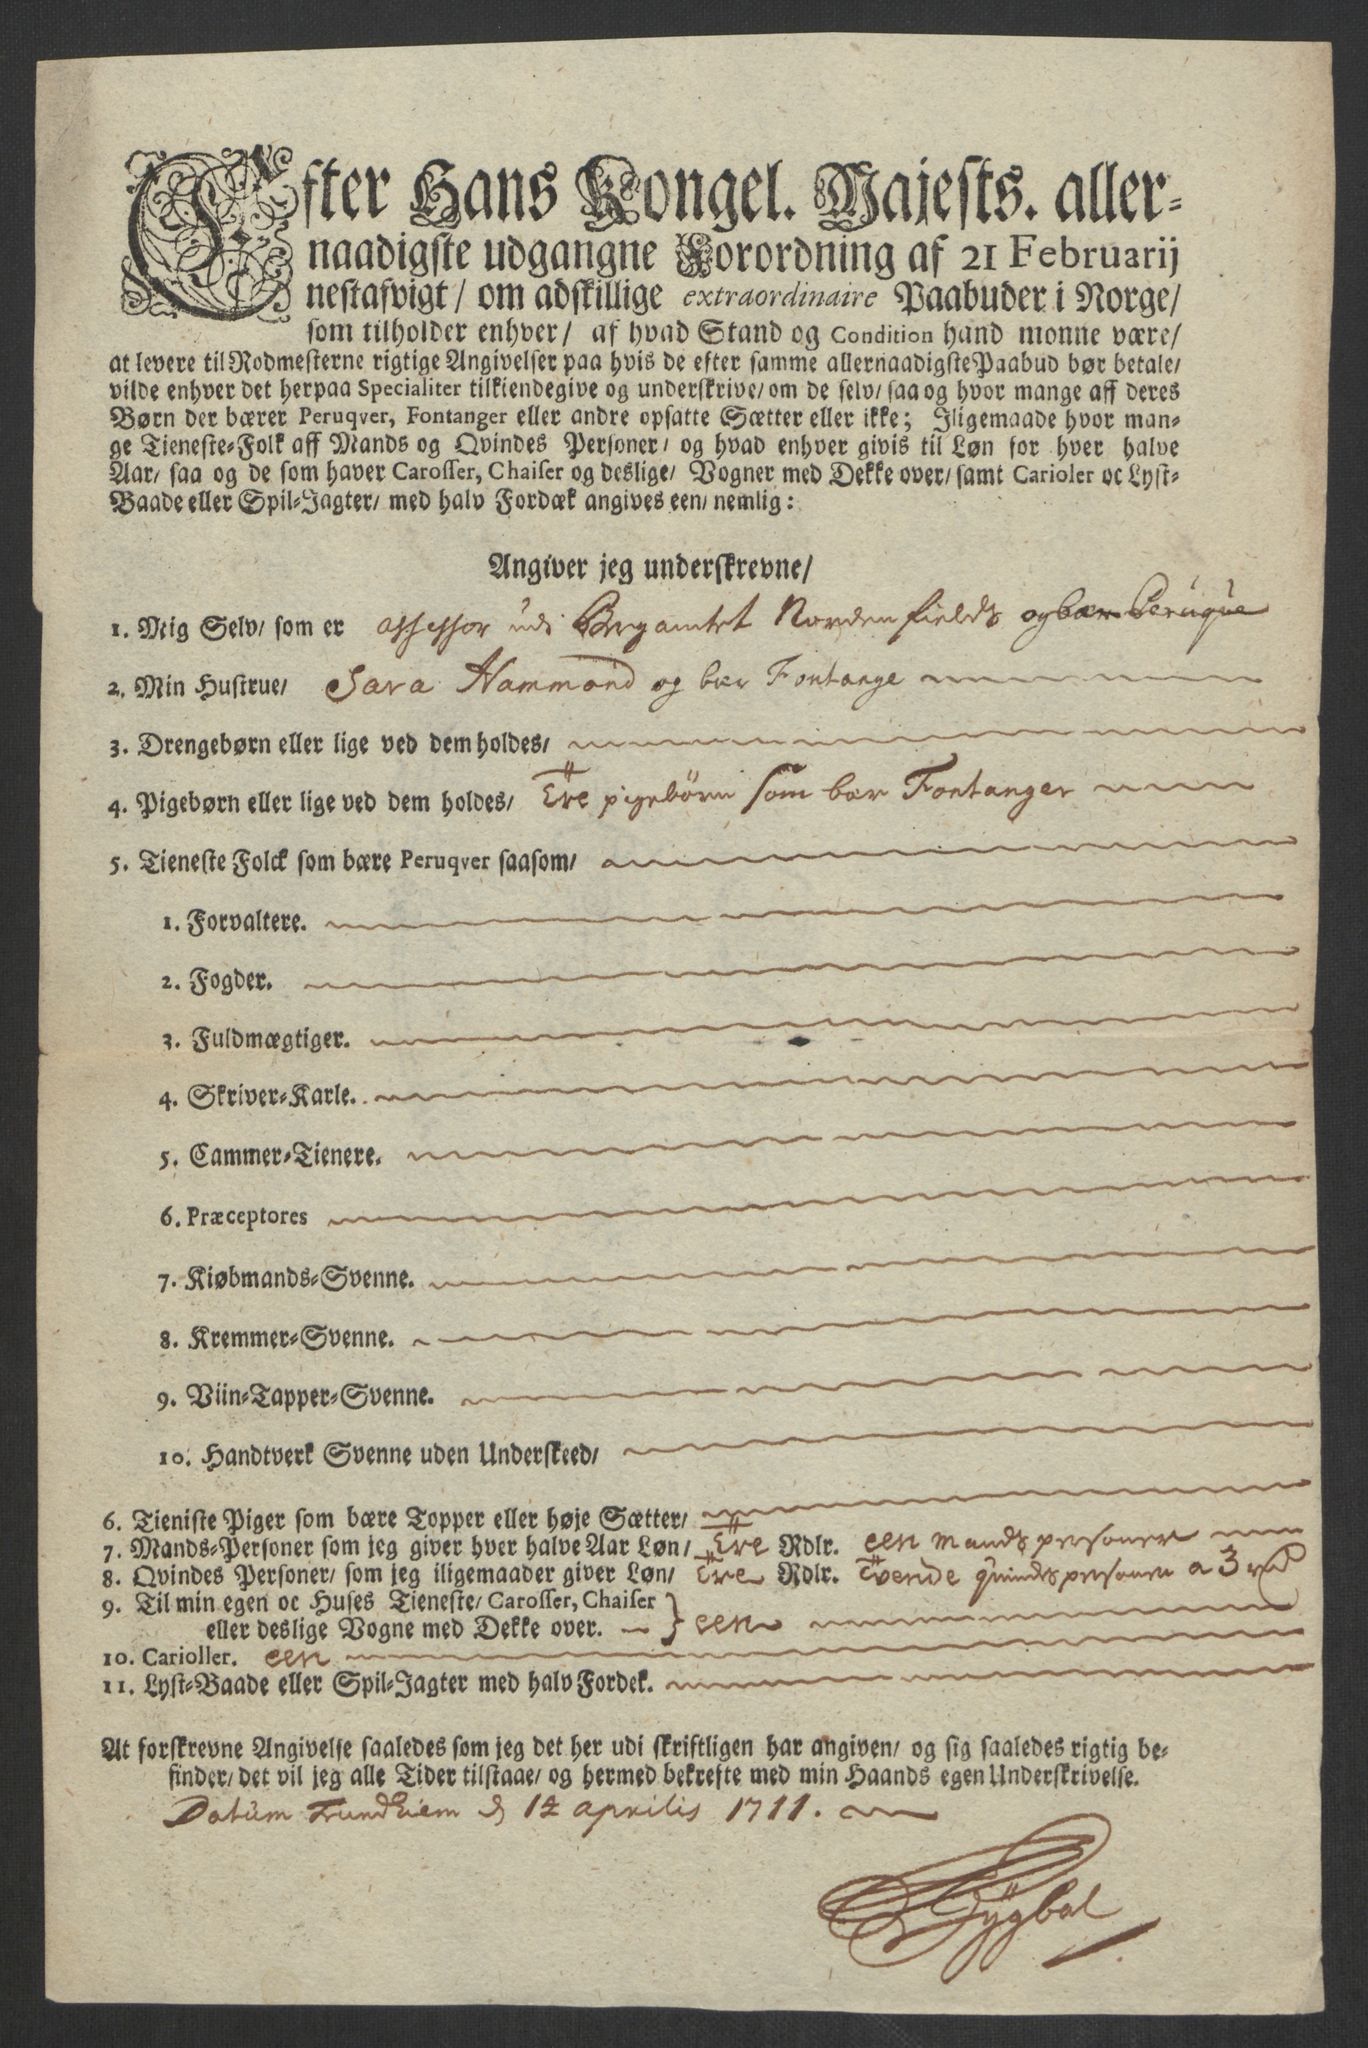 Efter Hans Kongel. Majests. aller-
naadigste udgangne Forordning af 21 Februarij
nestafvigt/ om adskillige extraordinaire Paabuder i Norge/
som tilholder enhver/ af hvad Stand og Condition hand monne være/
at levere til Rodmesterne rigtige Angivelser paa hvis de efter samme allernaadigste Paabud bør betale/
vilde enhver det herpaa Specialiter tilkiendegive og underskrive/ om de selv/ saa og hvor mange aff deres
Børn der bærer Peruqver, Fontanger eller andre opsatte Sætter eller ikke; Iligemaade hvor man-
ge Tieneste-Folk aff Mands og Qvindes Personer/ og hvad enhver givis til Løn for hver halve
Aar/ saa og de som haver Carosser, Chaiser og deslige/ Vogner med Dekke over/ samt Carioler oc Lyst-
Baade eller Spil-Jagter/ med halv Fordæk angives een/ nemlig:
Angiver jeg underskrevne/
1. Mig Selv/ som er assessor udi Bergamtet Nordenfields og bær Peruque
2. Min Hustrue/ Sara Hammond og bær Fontange
3. Drengebørn eller lige ved dem holdes/
4. Pigebørn eller lige ved dem holdes/ Tre pigebörn som bær Fontanger
5. Tieneste Folck som bære Peruqver saasom/
1. Forvaltere.
2. Fogder.
3. Fuldmægtiger.
4. Skriver-Karle.
5. Cammer-Tienere.
6. Præceptores
7. Kiøbmands-Svenne.
8. Kremmer-Svenne.
9. Viin-Tapper-Svenne.
10. Handtverk Svenne uden Underskeed/
6. Tieniste Piger som bære Topper eller høje Sætter/
7. Mands-Personer som jeg giver hver halve Aar Løn/ Tre Rdlr. een mands personer
8. Qvindes Personer/ som jeg iligemaader giver Løn/ Tre Rdlr. Tvende quindes personer a 3 rd
9. Til min egen oc Huses Tieneste/ Carosser, Chaiser
eller deslige Vogne med Dekke over. — } een
10. Carioller. een
11. Lyst-Baade eller Spil-Jagter med halv Fordek.
At forskrevne Angivelse saaledes som jeg det her udi skriftligen har angiven/ og sig saaledes rigtig be-
finder/ det vil jeg alle Tider tilstaae/ og hermed bekrefte med min Haands egen Underskrivelse.
Datum Trundhiem d 12 aprilis 1711.